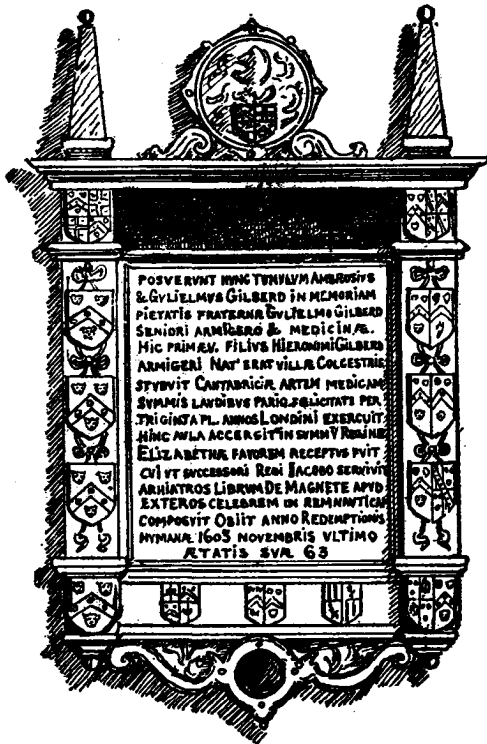 POSVERVNT HVNC TVMVLVM AMBROSIVS
& GVLIELMVS GILBERD IN MEMORIAM
PIETATIS FRATERNÆ GVLIELMO GILBERD
SENIORI ARMIGERO & MEDICINÆ.
HIC PRIMÆV. FILIVS HIERONIMI GILBERD
ARMIGERI NAT' ERAT VILLÆ COLCESTRIE
STVDVIT CANTABRIGIÆ ARTEM MEDICAM
SVMMIS LAVDIBVS PARIQ. FÆLICITATE PER
TRIGINTA PL. ANNOS LONDINI EXERCUIT
HINC AVLA ACCERGIT' IN SVMM' V REGINÆ
ELIZABETHÆ FAVOREM RECEPTVS FVIT
CVI VT SUCCESSORI REGI JACOBO SERVIVIT
ARHIATROS LIBRUM DE MAGNETE APVD
EXTEROS CELEBREM IN REM NAVTICAM
COMPOSVIT OBIIT ANNO REDEMPTIONIS
HVMANÆ 1603 NOVEMBRIS VLTIMO
ÆTATIS SVÆ 63